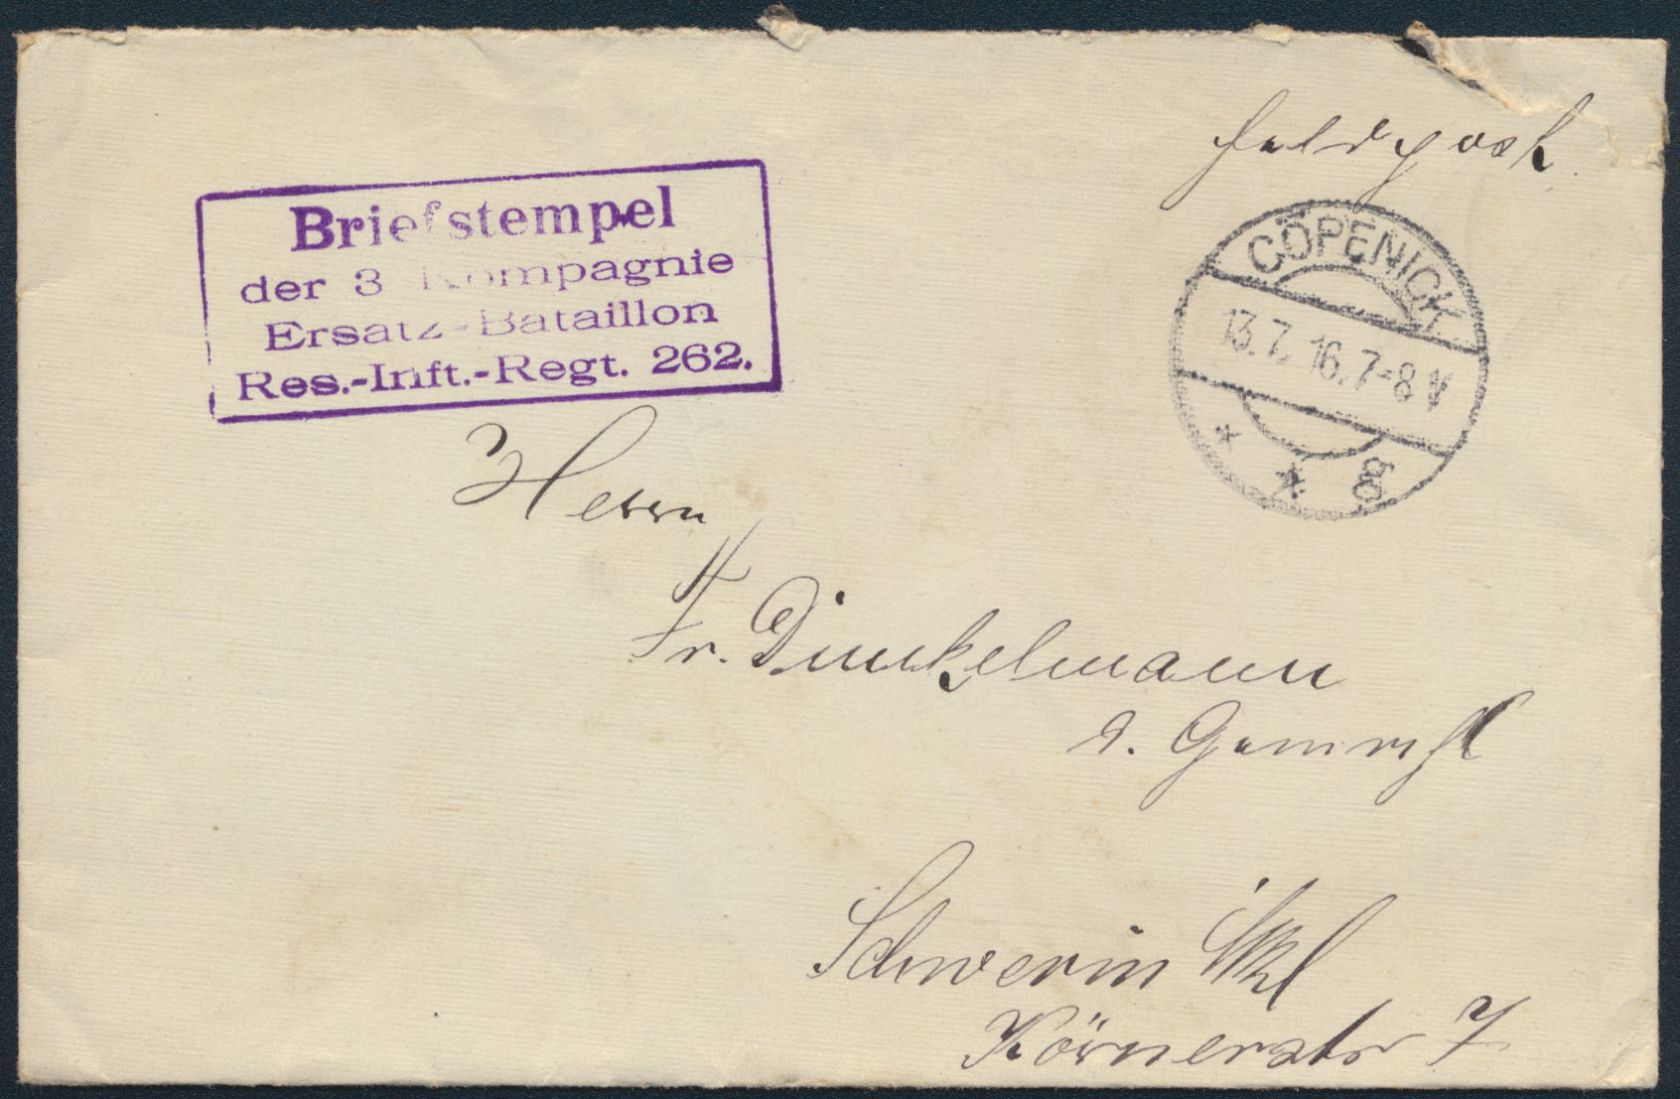 Feldpost
Briefstempel
der 3. Kompagnie
Ersatz-Bataillon
Res.-Inft.-Regt. 262.
CÖPENICK
13.7.16.7-8V
* * g
Herrn
Fr. Dinkelmann
Schwerin i/Mkl
Körnerstr 7